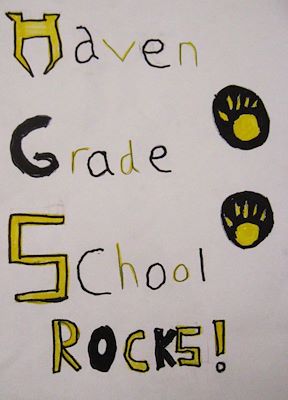 Haven
Grade
School
ROCKS!